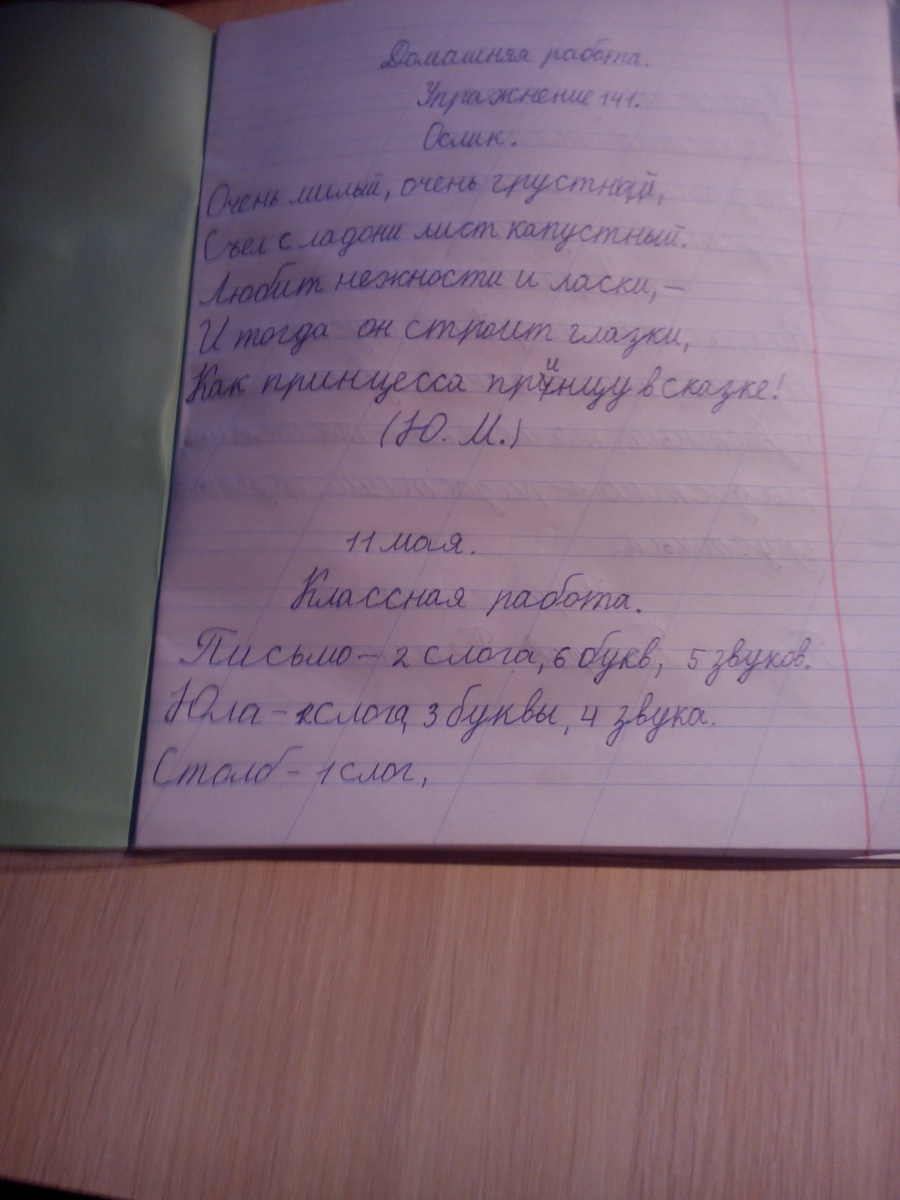 Домашняя работа.
Упражнение 141.
Ослик.
Очень милый, очень грустный,
Съел с ладони лист капустный.
Любит нежности и ласки, –
И тогда он строит глазки,
Как принцесса принцу в сказке!
(Ю. М.)
11 мая.
Классная работа.
Письмо – 2 слога, 6 букв, 5 звуков.
Юла – 2 слога, 3 буквы, 4 звука.
Столб – 1 слог,